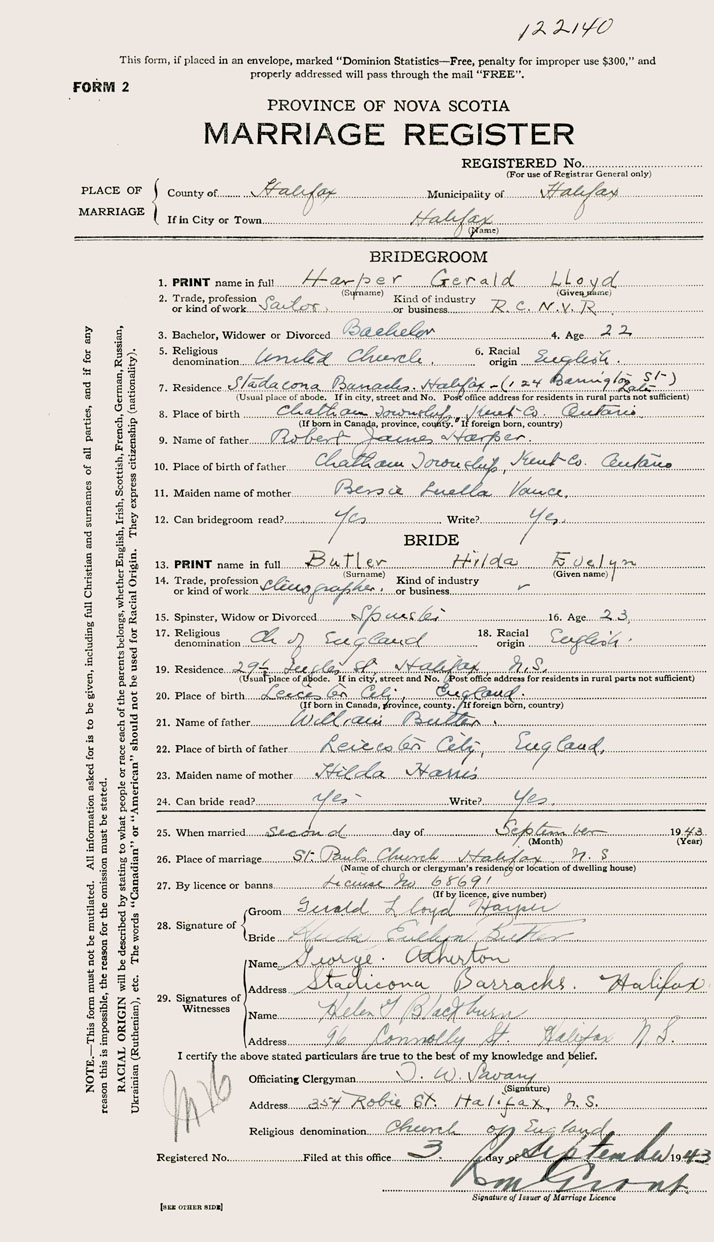 122140
This form, if placed in an envelope, marked "Dominion Statistics—Free, penalty for improper use $300," and
properly addressed will pass through the mail "FREE".
FORM 2
PROVINCE OF NOVA SCOTIA
MARRIAGE REGISTER
REGISTERED No.
(For use of Registrar General only)
PLACE OF MARRIAGE
County of Halifax Municipality of Halifax
If in City or Town Halifax
(Name)
BRIDEGROOM
1. PRINT name in full Harper Gerald Lloyd
(Surname) (Given name)
2. Trade, profession or kind of work Sailor. Kind of industry or business R.C.N.V.R.
3. Bachelor, Widower or Divorced Bachelor 4. Age 22
5. Religious denomination United Church 6. Racial origin English.
7. Residence Stadacona Barracks. Halifax - (124 Barrington St-)
(Usual place of abode. If in city, street and No. Post office address for residents in rural parts not sufficient)
8. Place of birth Chatham Township, Kent Co. Ontario
(If born in Canada, province, county. If foreign born, country)
9. Name of father Robert James Harper.
10. Place of birth of father Chatham Township, Kent Co. Ontario
11. Maiden name of mother Bessie Luella Vance.
12. Can bridegroom read? Yes Write? Yes.
BRIDE
13. PRINT name in full Butler Hilda Evelyn
(Surname) (Given name)
14. Trade, profession or kind of work Stenographer. Kind of industry or business
15. Spinster, Widow or Divorced Spinster 16. Age 23
17. Religious denomination Ch of England 18. Racial origin English.
19. Residence Inglis St. Halifax N.S.
(Usual place of abode. If in city, street and No. Post office address for residents in rural parts not sufficient)
20. Place of birth Leicester City, England.
(If born in Canada, province, county. If foreign born, country)
21. Name of father William Butler.
22. Place of birth of father Leicester City, England.
23. Maiden name of mother Hilda Harris
24. Can bride read? Yes Write? Yes.
25. When married second day of September 1943
(Month) (Year)
26. Place of marriage St. Pauls Church Halifax N.S
(Name of church or clergyman's residence or location of dwelling house)
27. By licence or banns License No 68691
(If by licence, give number)
28. Signature of
Groom Gerald Lloyd Harper
Bride Hilda Evelyn Butler
29. Signatures of Witnesses
Name George Atherton
Address Stadicona Barracks. Halifax
Name Helen Blackburn
Address 96 Connolly St. Halifax N.S.
I certify the above stated particulars are true to the best of my knowledge and belief.
Officiating Clergyman T. W. Savary
(Signature)
Address 354 Robie St. Halifax, N.S.
Religious denomination Church of England
Registered No. Filed at this office 3 day of September 1943
Signature of Issuer of Marriage Licence
[SEE OTHER SIDE]
NOTE.—This form must not be mutilated. All information asked for is to be given, including full Christian and surnames of all parties, and if for any
reason this is impossible, the reason for the omission must be stated.
RACIAL ORIGIN will be described by stating to what people or race each of the parents belongs, whether English, Irish, Scottish, French, German, Russian,
Ukrainian (Ruthenian), etc. The words "Canadian" or "American" should not be used for Racial Origin. They express citizenship (nationality).